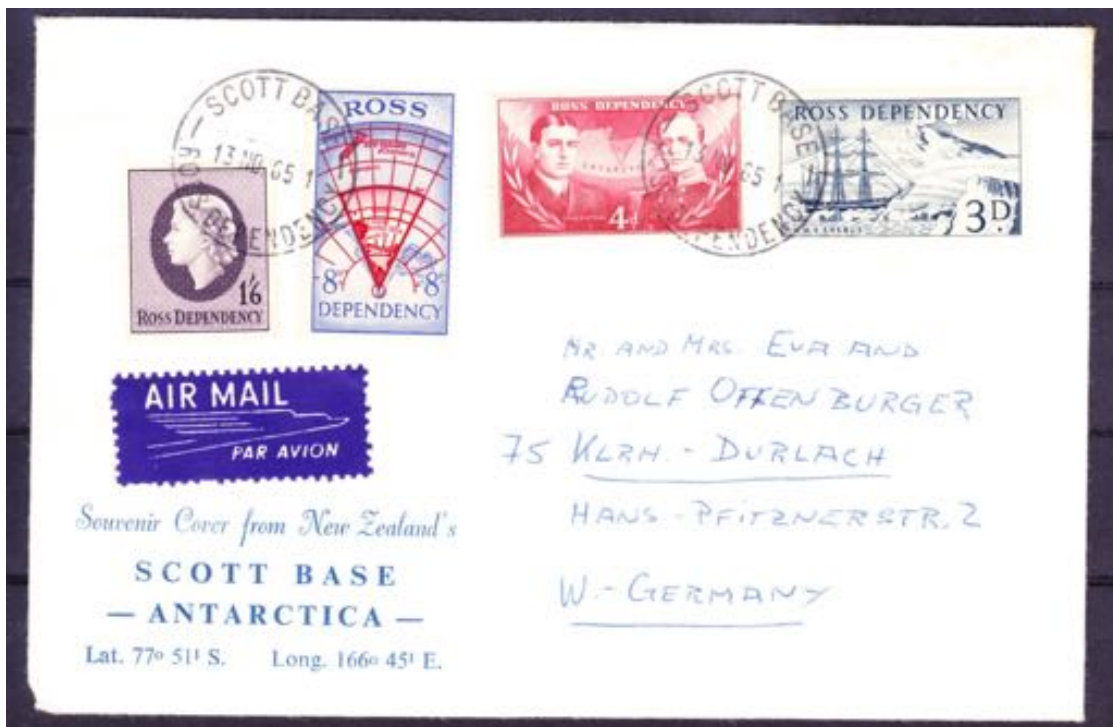 SCOTT BASE
13 NO 65 1
DEPENDENCY
ROSS
8D 8D
DEPENDENCY
1/6
ROSS DEPENDENCY
ROSS DEPENDENCY
4d
SCOTT BASE
13 NO 65 1
DEPENDENCY
ROSS DEPENDENCY
3D.
AIR MAIL
PAR AVION
Souvenir Cover from New Zealand's
SCOTT BASE
— ANTARCTICA —
Lat. 77o 51' S. Long. 166o 45' E.
MR. AND MRS. EVA AND
RUDOLF OFFENBURGER
75 KLRH. - DURLACH
HANS-PFITZNERSTR. 2
W.-GERMANY